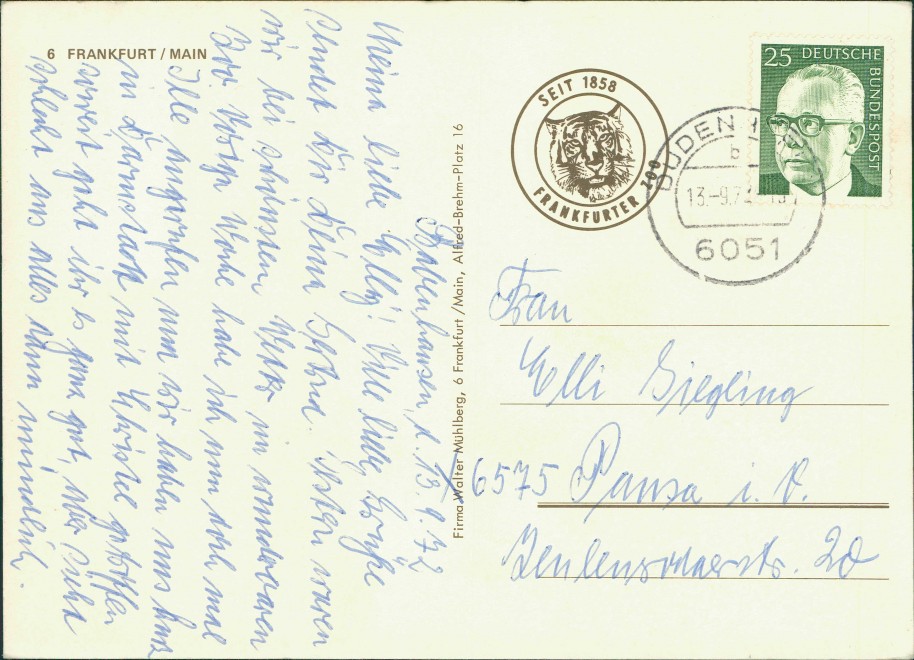 6 FRANKFURT / MAIN
Babenhausen, d. 13.9.72
Meine liebe Elly! Viele liebe Grüße
sendet dir Deine Gerda. Gestern waren
wir bei schönstem Wetter im wunderbaren
Zoo. Vorige Woche habe ich nun doch mal
Ille angerufen und wir haben uns kurz
in Darmstadt mit Christel getroffen
soweit geht ihr es ganz gut, man sieht
schon aus alles dann mündlich.
Firma Walter Mühlberg, 6 Frankfurt/Main, Alfred-Brehm-Platz 16
SEIT 1858
FRANKFURTER ZOO
25 DEUTSCHE
BUNDESPOST
b
13.-9.72
6051
Frau
Elli Siegling
X 6575 Pausa i. V.
Zeulenrodaerstr. 20